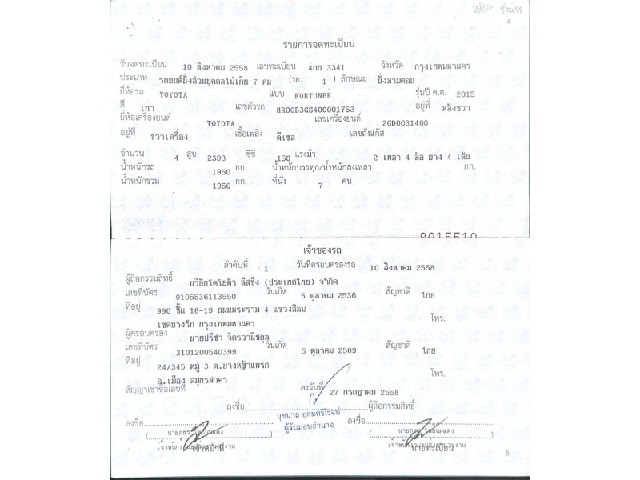 รายการจดทะเบียน
วันจดทะเบียน 10 สิงหาคม 2558 เลขทะเบียน 3341 จังหวัด กรุงเทพมหานคร
ประเภท รถยนต์นั่งส่วนบุคคลไม่เกิน 7 คน (รย. 1) ลักษณะ นั่งสามตอน
ยี่ห้อรถ TOYOTA แบบ FORTUNER รุ่นปี ค.ศ. 2015
สี เทา เลขตัวรถ อยู่ที่ หลังขวา
ยี่ห้อเครื่องยนต์ TOYOTA เลขเครื่องยนต์ 2GD0031460
อยู่ที่ ขวาเครื่อง เชื้อเพลิง ดีเซล เลขถังแก๊ส
จำนวน 4 สูบ 2393 ซีซี 150 แรงม้า 2 เพลา 4 ล้อ ยาง 4 เส้น
น้ำหนักรถ 1950 กก. น้ำหนักบรรทุก/น้ำหนักลงเพลา กก.
น้ำหนักรวม 1950 กก. ที่นั่ง 7 คน
เจ้าของรถ
ลำดับที่ 1 วันที่ครอบครองรถ 10 สิงหาคม 2558
ผู้ถือกรรมสิทธิ์ บริษัทโตโยต้า ลีสซิ่ง (ประเทศไทย) จำกัด
เลขที่บัตร 0105536113550 วันเกิด 5 ตุลาคม 2536 สัญชาติ ไทย
ที่อยู่ 990 ชั้น 18-19 ถนนพระราม 4 แขวงสีลม
เขตบางรัก กรุงเทพมหานคร โทร.
ผู้ครอบครอง นายปรีชา
เลขที่บัตร 3101200540399 วันเกิด 6 ตุลาคม 2509 สัญชาติ ไทย
ที่อยู่ 24/345 หมู่ 3 ต.บางหญ้าแพรก
อ.เมือง สมุทรสาคร โทร.
สัญญาเช่าซื้อเลขที่ ลงวันที่ 27 กรกฎาคม 2558
ลงชื่อ ผู้ถือกรรมสิทธิ์
ผู้รับมอบอำนาจ
ลงชื่อ ลงชื่อ
นายทะเบียน
5